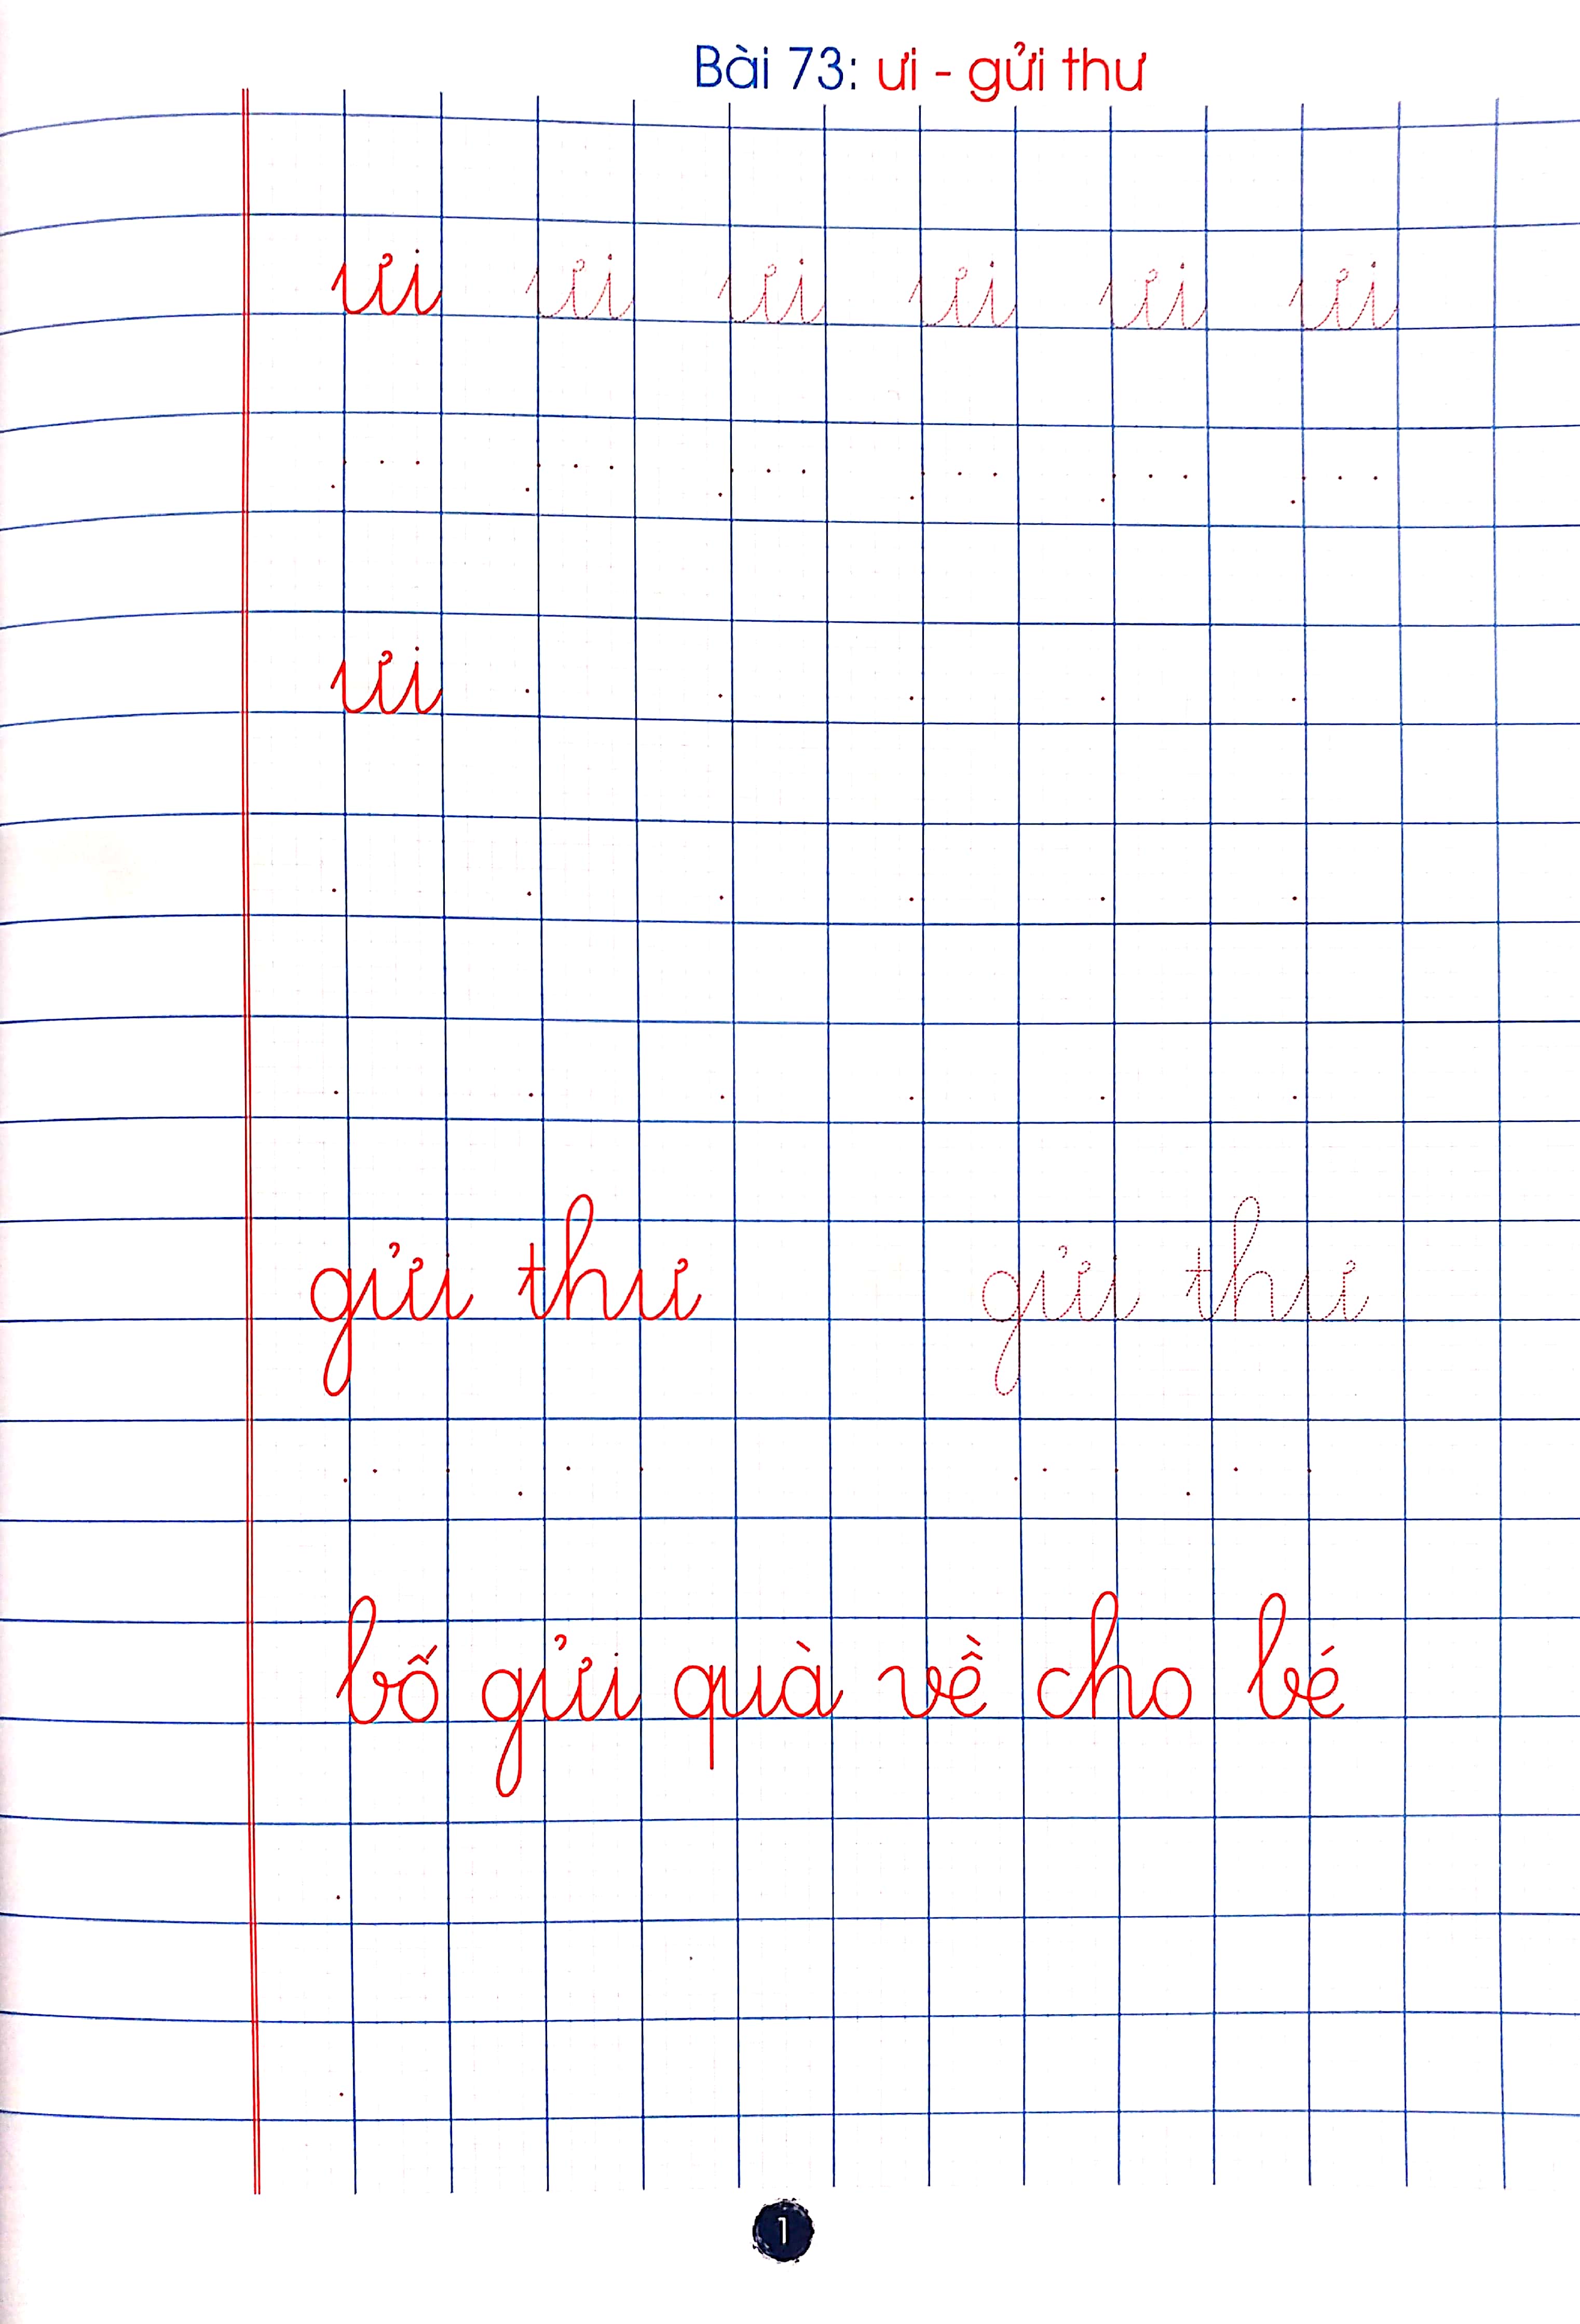 Bài 73: ưi - gửi thư
ưi ưi ưi ưi ưi ưi
ưi
gửi thư gửi thư
bố gửi quà về cho bé
1